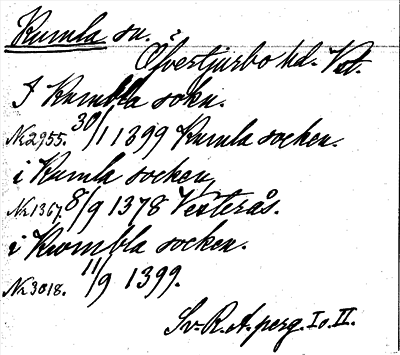 Kumla sn.
Öfvertjurbo hd. Vst.
I Kumbla sokn.
Nr 2955. 30/1 1399 Kumla socken.
i Kumla socken,
Nr 1367. 8/9 1378 Vesterås.
i Kwmbla socken.
Nr 3018. 11/9 1399.
Sv. R. A. perg. I o. II.